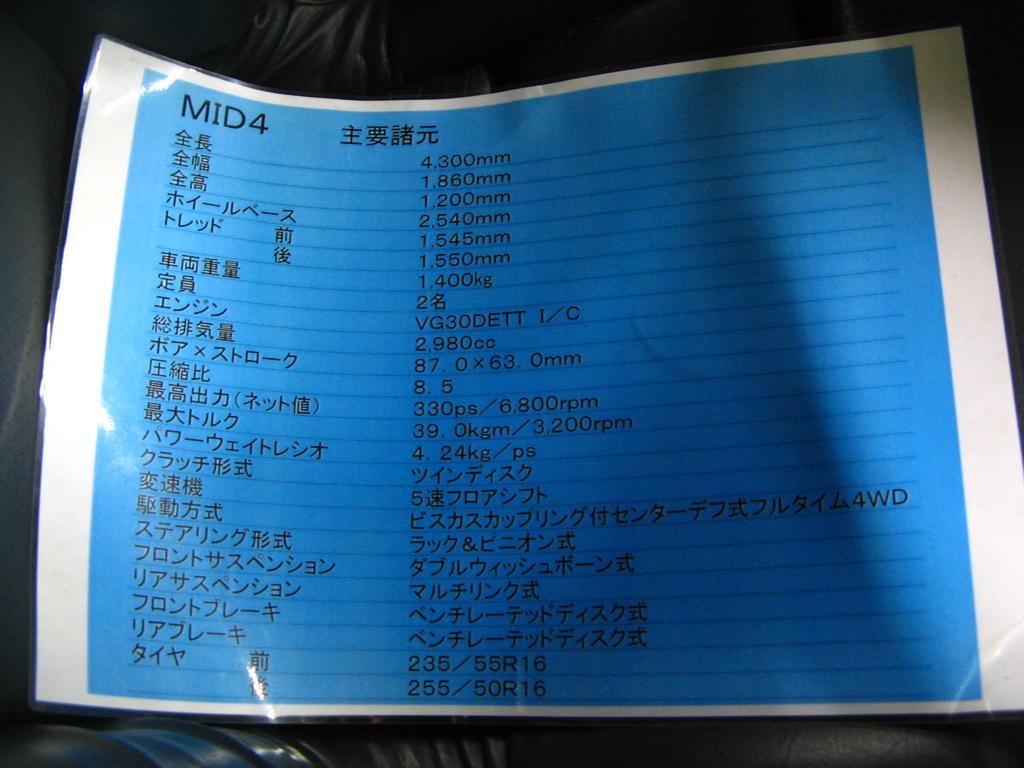 MID4 主要諸元
全長 4,300mm
全幅 1,860mm
全高 1,200mm
ホイールベース 2,540mm
トレッド 前 1,545mm
後 1,550mm
車両重量 1,400kg
定員 2名
エンジン VG30DETT I/C
総排気量 2,980cc
ボア×ストローク 87.0×63.0mm
圧縮比 8.5
最高出力(ネット値) 330ps/6,800rpm
最大トルク 39.0kgm/3,200rpm
パワーウェイトレシオ 4.24kg/ps
クラッチ形式 ツインディスク
変速機 5速フロアシフト
駆動方式 ビスカスカップリング付センターデフ式フルタイム4WD
ステアリング形式 ラック&ピニオン式
フロントサスペンション ダブルウィッシュボーン式
リアサスペンション マルチリンク式
フロントブレーキ ベンチレーテッドディスク式
リアブレーキ ベンチレーテッドディスク式
タイヤ 前 235/55R16
後 255/50R16